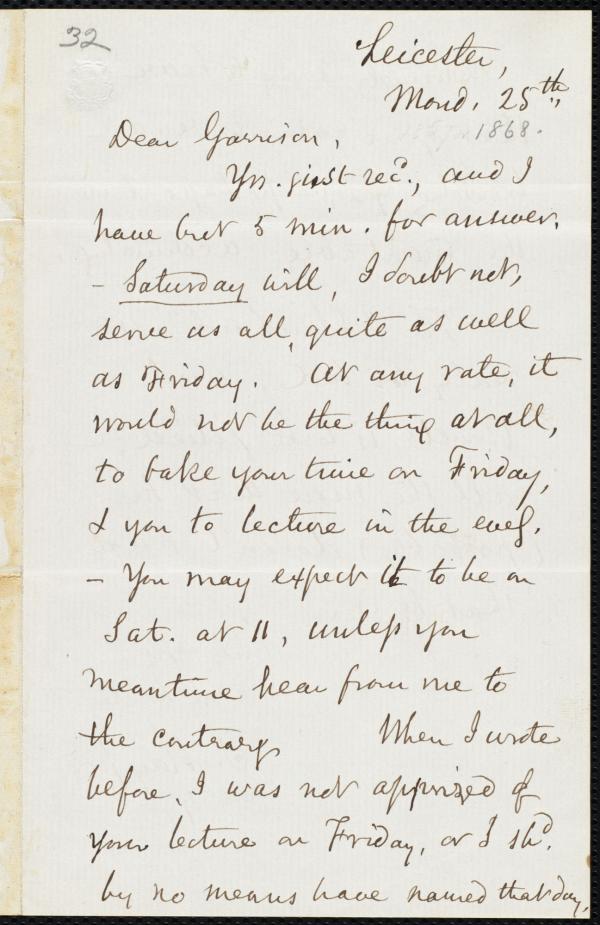 32
Leicester,
Mond. 25th,
1868.
Dear Garrison,
Yrs. just recd., and I
have but 5 min. for answer.
- Saturday will, I doubt not,
serve us all, quite as well
as Friday. At any rate, it
would not be the thing at all,
to take your time on Friday,
& you to lecture in the eveg.
- You may expect it to be on
Sat. at 11, unless you
meantime hear from me to
the contrary When I wrote
before, I was not apprized of
your lecture on Friday, or I shd.
by no means have named that day.